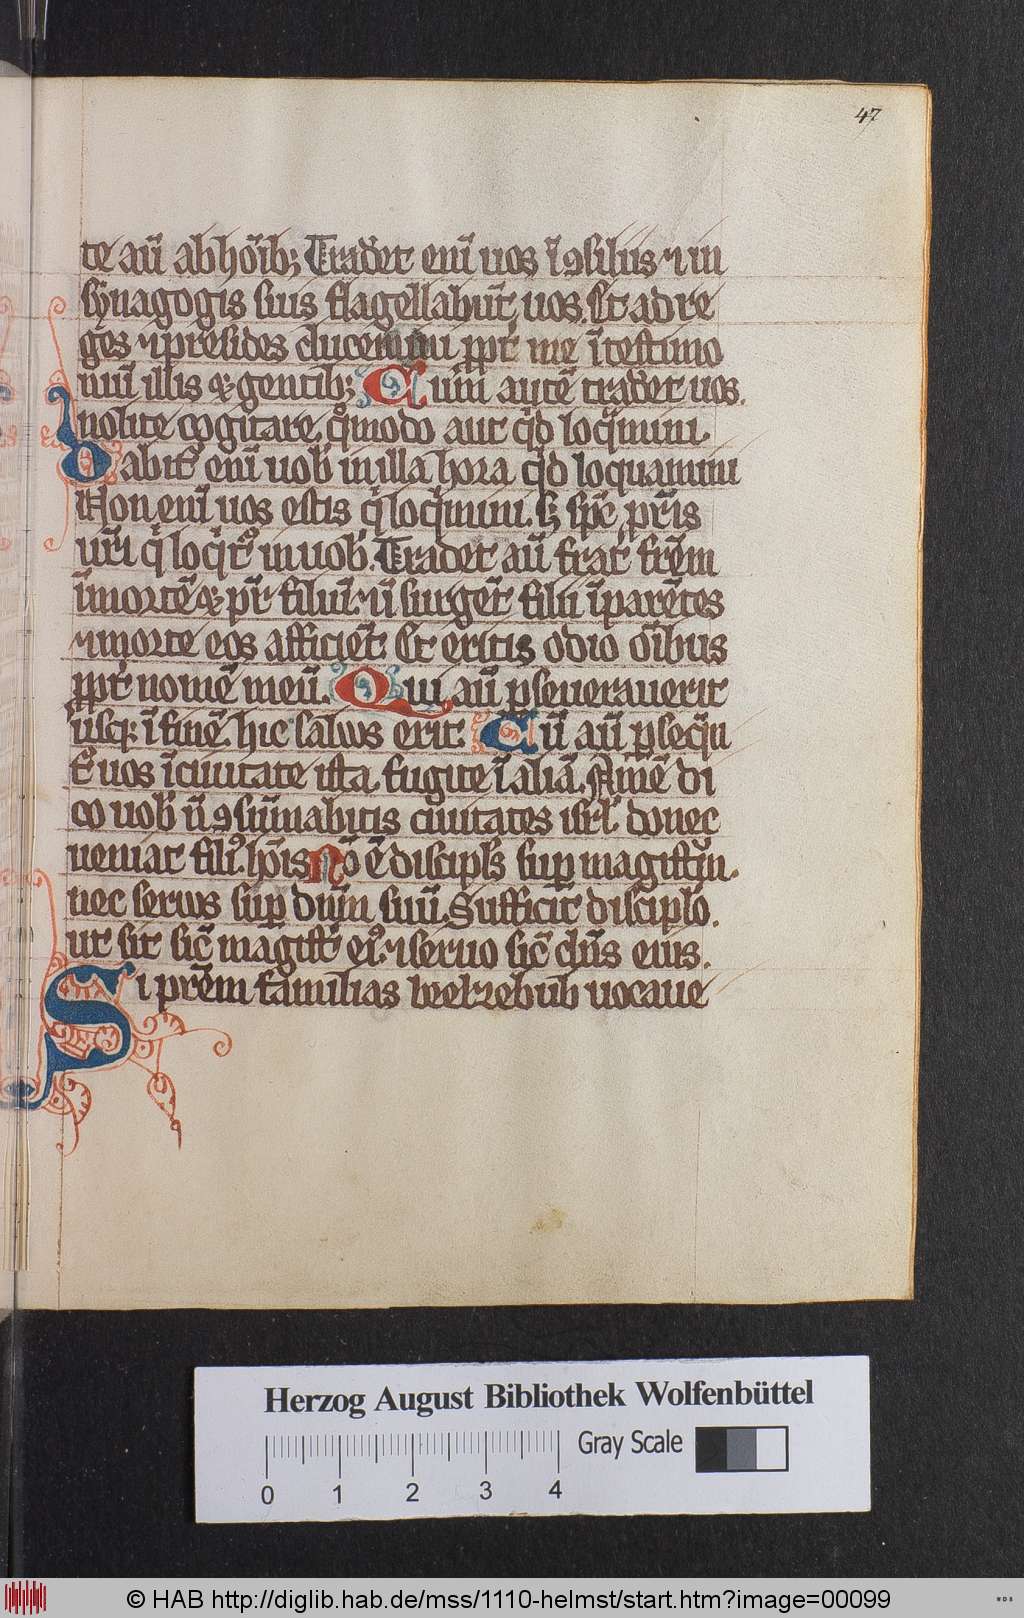 47
te aū ab hōib; Tradēt enī uos ī ꝯsilus ⁊ in
synagogis suis flagellabūt uos. Et ad re
ges ⁊ presides ducemini ꝓpt̄ me ī testimo
niū illis ⁊ gentib; Cum autē tradēt uos.
nolite cogitare, qͦmodo aut qͥd loqͣmini.
Dabit᷑ enī uob̄ in illa hora qͥd loquamini
Non enī uos estis qͥ loqͥmini. sꝫ sp̄c pr̄is
ur̄i qͥ loqͥt᷑ in uob̄. Tradet aū frat᷑ fr̄em
ī mortē ⁊ pr̄ filiū. ⁊ ī surgēt filii ī parētes
⁊ morte eos afficiēt. Et eritis odio oībus
ꝓpt᷑ nomē meū. Qui aū ꝑseuerauerit
usqꝫ ī finē hic saluus erit. Cū aū ꝑseqͣn
t᷑ uos ī ciuitate ista. fugite ī aliā. Amē di
co uob̄ ñ ꝯsūmabitis ciuitates isrl̄ donec
ueniat filiꝰ hōis Nō ē discipls̄ suꝑ magistꝝ.
nec seruus suꝑ dnm̄ suū. Sufficit disciplo̅.
ut sit sic̄ magist᷑ eiꝰ. ⁊ seruo sic̄ dn̄s eius.
Si pr̄em familias beelzebub uocaue
Herzog August Bibliothek Wolfenbüttel
0 1 2 3 4
Gray Scale
© HAB http://diglib.hab.de/mss/1110-helmst/start.htm?image=00099